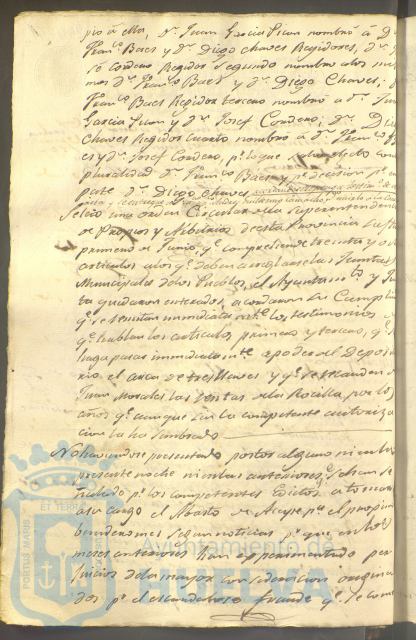 pio á ella, Dn. Juan Garcia Jican nombró á D
Franco. Baes y Dn. Diego Chaves Regidores, Dn. J
sé Cordero Regidor segundo nombró a los mis
mos Dn. Franco. Baes y Dn. Diego Chaves; D
Franco. Baes Regidor tercero nombró a Dn. Jua
Garcia Jican y Dn. Josef Cordero; Dn. Di
Chaves Regidor cuarto nombró a Dn. Franco. B
es y Dn. Josef Cordero, pr. lo que electo con
pluralidad Dn. Franco. Baes y pr. decision pr. 
parte Dn. Diego Chaves
Se leio una orden Circular de la Superintendencia
de Propios y Arbitrios de esta Provincia su fha
primero de Junio qe. comprende treinta y o
articulos a los qe. deben arreglarse las Juntas
Municipales de los Pueblos, el Ayuntamto. y Jun
ta quedaron enterados, acordaron su Cumpli
qe. se remitan inmediatamte. los testimonios 
qe. hablan los articulos primero y tercero, qe. 
haga pasar inmediatamte. a poder del Deposi
rio el arca de tres llaves y qe. 
Juan Morales las rentas de la Rocilla por los
años qe. aunque sin la competente autoriza
cion la ha sembrado
No haviendose presentado postor alguno ni en la
presente noche ni en las anteriores qe. se han se
ñalado pr. los competentes Edictos a tomar
a su cargo el Abasto de Aceyte pa. el proximo
benidero mes segun noticias pr. que en los
meses anteriores han experimentado per
juicios de la mayor consideracion origina
dos pr. el escandaloso fraude qe. se come
PORTUS MARIS
ET TERRAE
Ayuntamiento de
HUELVA